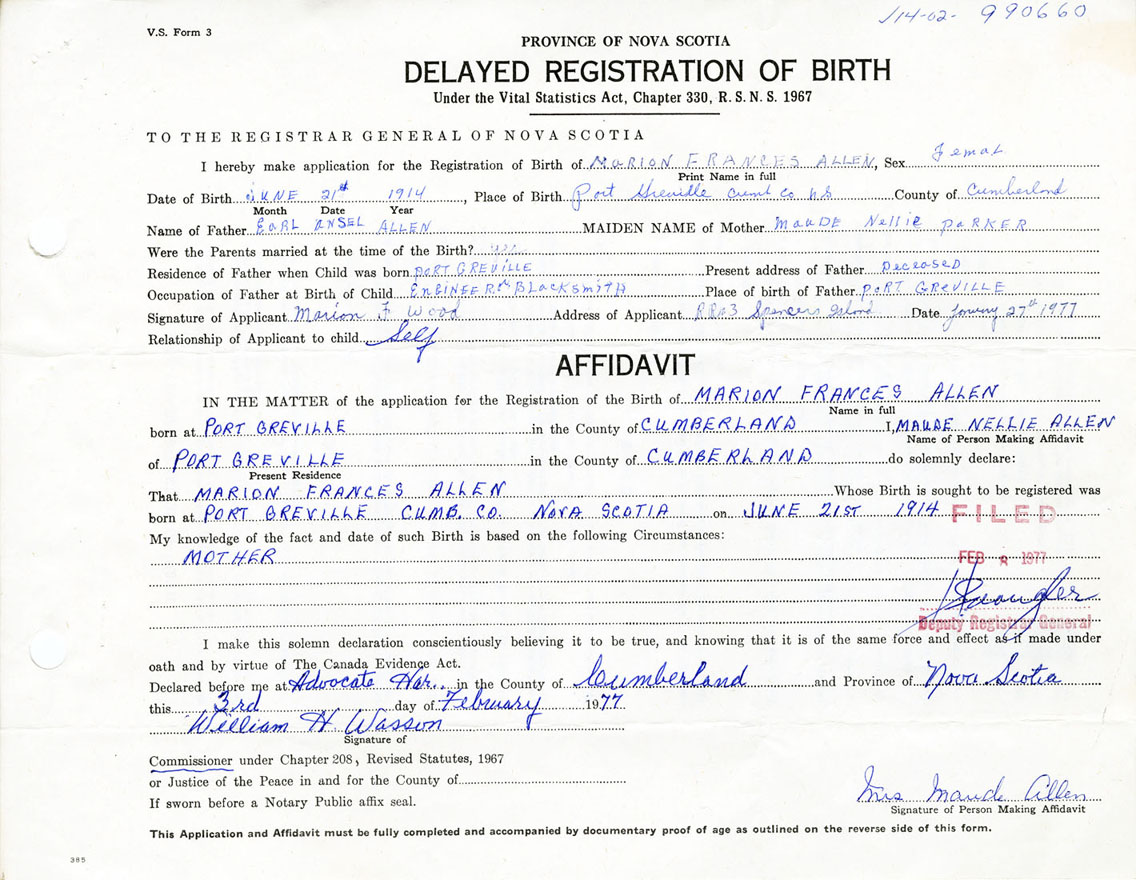 V.S. Form 3
114-02- 990660
PROVINCE OF NOVA SCOTIA
DELAYED REGISTRATION OF BIRTH
Under the Vital Statistics Act, Chapter 330, R. S. N. S. 1967
TO THE REGISTRAR GENERAL OF NOVA SCOTIA
I hereby make application for the Registration of Birth of MARION FRANCES ALLEN, Sex Femal
Print Name in full
Date of Birth JUNE 21st 1914, Place of Birth Port Greville Cumb Co NS County of Cumberland
Month Date Year
Name of Father EARL ANSEL ALLEN MAIDEN NAME of Mother MAUDE Nellie PARKER
Were the Parents married at the time of the Birth? yes
Residence of Father when Child was born PORT GREVILLE Present address of Father Deceased
Occupation of Father at Birth of Child ENGINEER Blacksmith Place of birth of Father PORT GREVILLE
Signature of Applicant Marion F Wood Address of Applicant RR#3 Spencers Island Date January 27th 1977
Relationship of Applicant to child Self
AFFIDAVIT
IN THE MATTER of the application for the Registration of the Birth of MARION FRANCES ALLEN
Name in full
born at PORT GREVILLE in the County of CUMBERLAND I, MAUDE NELLIE ALLEN
Name of Person Making Affidavit
of PORT GREVILLE in the County of CUMBERLAND do solemnly declare:
Present Residence
That MARION FRANCES ALLEN Whose Birth is sought to be registered was
born at PORT GREVILLE CUMB. CO. NOVA SCOTIA on JUNE 21ST 1914
FILED
My knowledge of the fact and date of such Birth is based on the following Circumstances:
MOTHER
FEB 8 1977
Deputy Registrar General
I make this solemn declaration conscientiously believing it to be true, and knowing that it is of the same force and effect as if made under
oath and by virtue of The Canada Evidence Act.
Declared before me at Advocate Har. in the County of Cumberland and Province of Nova Scotia
this 3rd day of February 1977
William H Wasson
Signature of
Commissioner under Chapter 208, Revised Statutes, 1967
or Justice of the Peace in and for the County of
If sworn before a Notary Public affix seal.
Mrs Maude Allen
Signature of Person Making Affidavit
This Application and Affidavit must be fully completed and accompanied by documentary proof of age as outlined on the reverse side of this form.
385